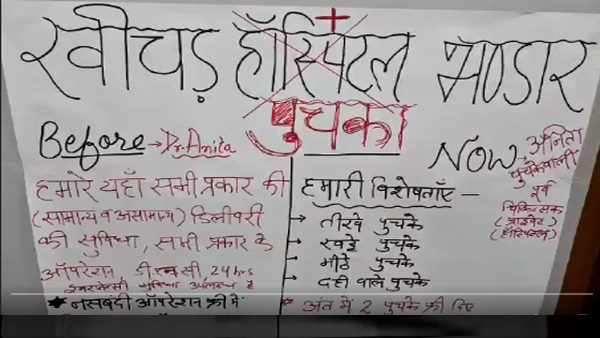 खीचड़ हॉस्पिटल भण्डार
पुचका
Before → Dr. Anita
हमारे यहाँ सभी प्रकार की
(सामान्य व असामान्य) डिलीवरी
की सुविधा, सभी प्रकार के
ऑपरेशन, डी एन सी, 24 hrs
इमरजेन्सी सुविधा उपलब्ध है
* नसबंदी ऑपरेशन फ्री में
हमारी विशेषताएँ —
→ तीखे पुचके
→ खट्टे पुचके
→ मीठे पुचके
→ दही वाले पुचके
* अंत में 2 पुचके फ्री दिए
NOW अनिता
पुचकेवाली
पूर्व
चिकित्सक
(प्राइवेट)
(हॉस्पिटल)